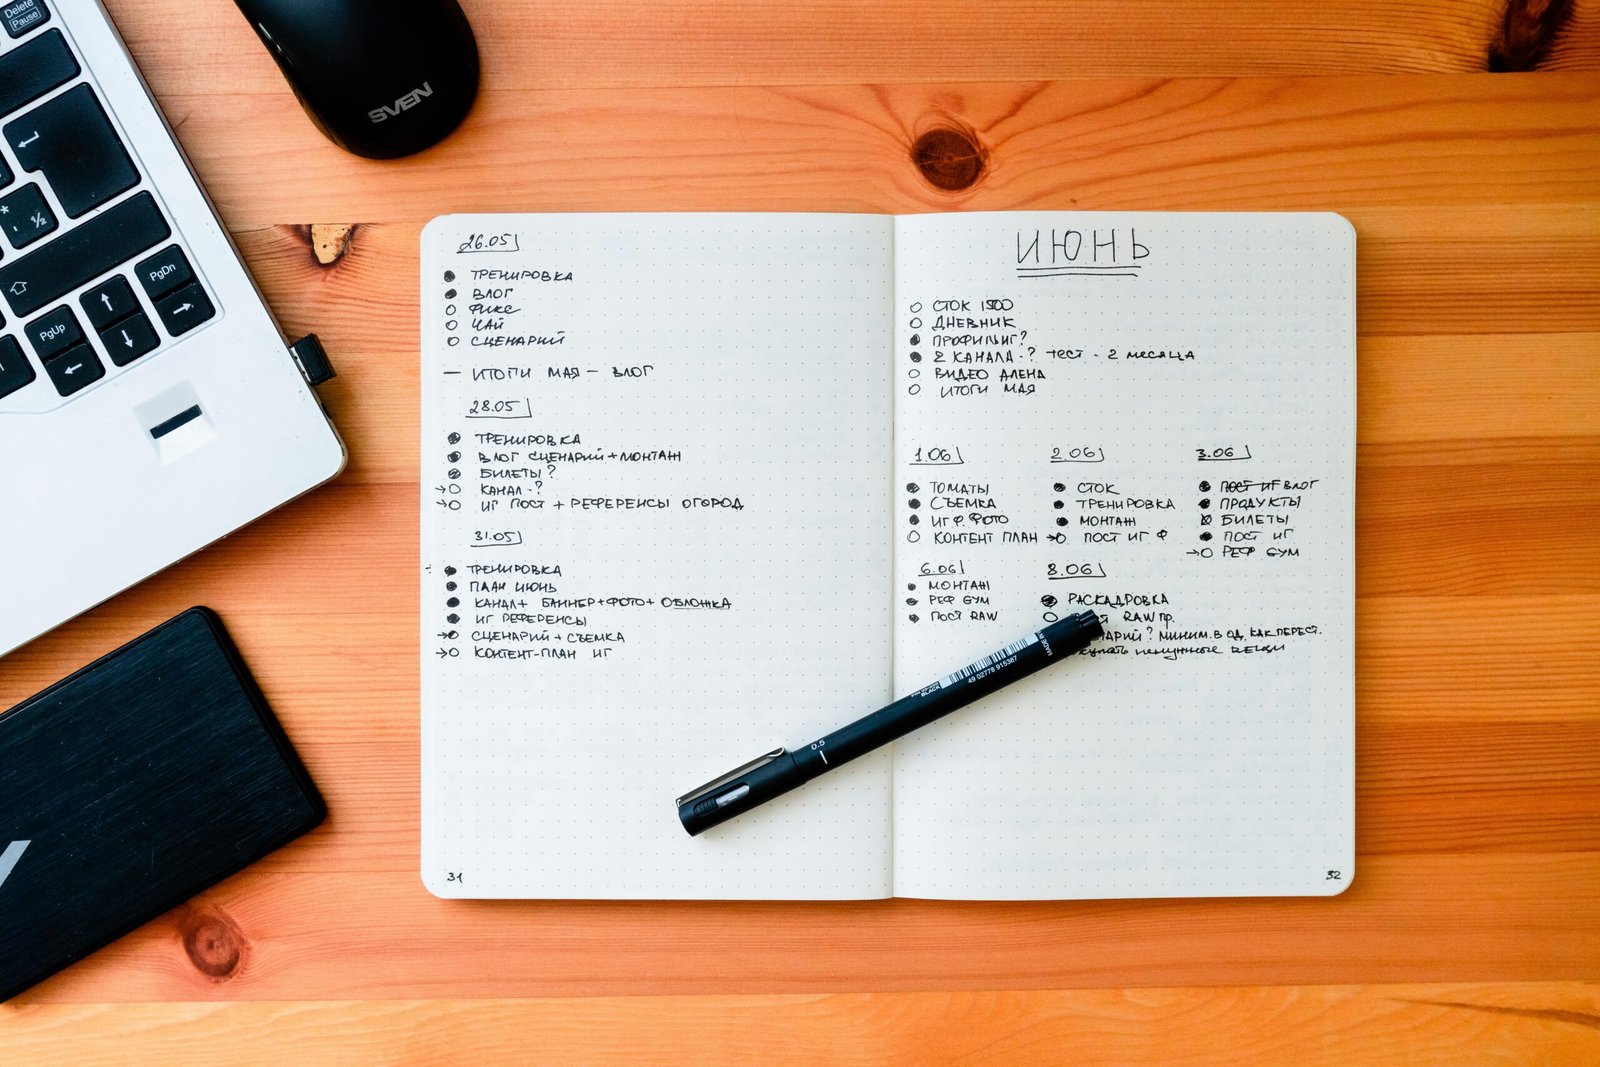 Delete
Pause
SVEN
* ½
PgDn
PgUp
26.05
ТРЕНИРОВКА
ВЛОГ
ФИКС
ЧАЙ
СЦЕНАРИЙ
— ИТОГИ МАЯ — ВЛОГ
28.05
ТРЕНИРОВКА
ВЛОГ СЦЕНАРИЙ+МОНТАЖ
БИЛЕТЫ?
КАНАЛ-?
ИГ ПОСТ + РЕФЕРЕНСЫ ОГОРОД
31.05
ТРЕНИРОВКА
ПЛАН ИЮНЬ
КАНАЛ+ БАННЕР+ФОТО+ ОБЛОЖКА
ИГ РЕФЕРЕНСЫ
СЦЕНАРИЙ+СЪЕМКА
КОНТЕНТ-ПЛАН ИГ
31
ИЮНЬ
СТОК 1500
ДНЕВНИК
2 КАНАЛА-? ТЕСТ - 2 МЕСЯЦА
ВИДЕО АЛЕНА
ИТОГИ МАЯ
1.06
ТОМАТЫ
СЪЕМКА
ИГ Ф. ФОТО
КОНТЕНТ ПЛАН
2.06
СТОК
ТРЕНИРОВКА
МОНТАЖ
ПОСТ ИГ Ф
3.06
ПОСТ ИГ ВЛОГ
ПРОДУКТЫ
БИЛЕТЫ
ПОСТ ИГ
РЕФ GYM
6.06
МОНТАЖ
РЕФ GYM
ПОСТ RAW
8.06
РАСКАДРОВКА
RAW ПР.
? МИНИМ. В ОД. КАК ПЕРЕСТ.
ненужные вещи
32
MADE IN
49 02778 915387
BLACK
0.5